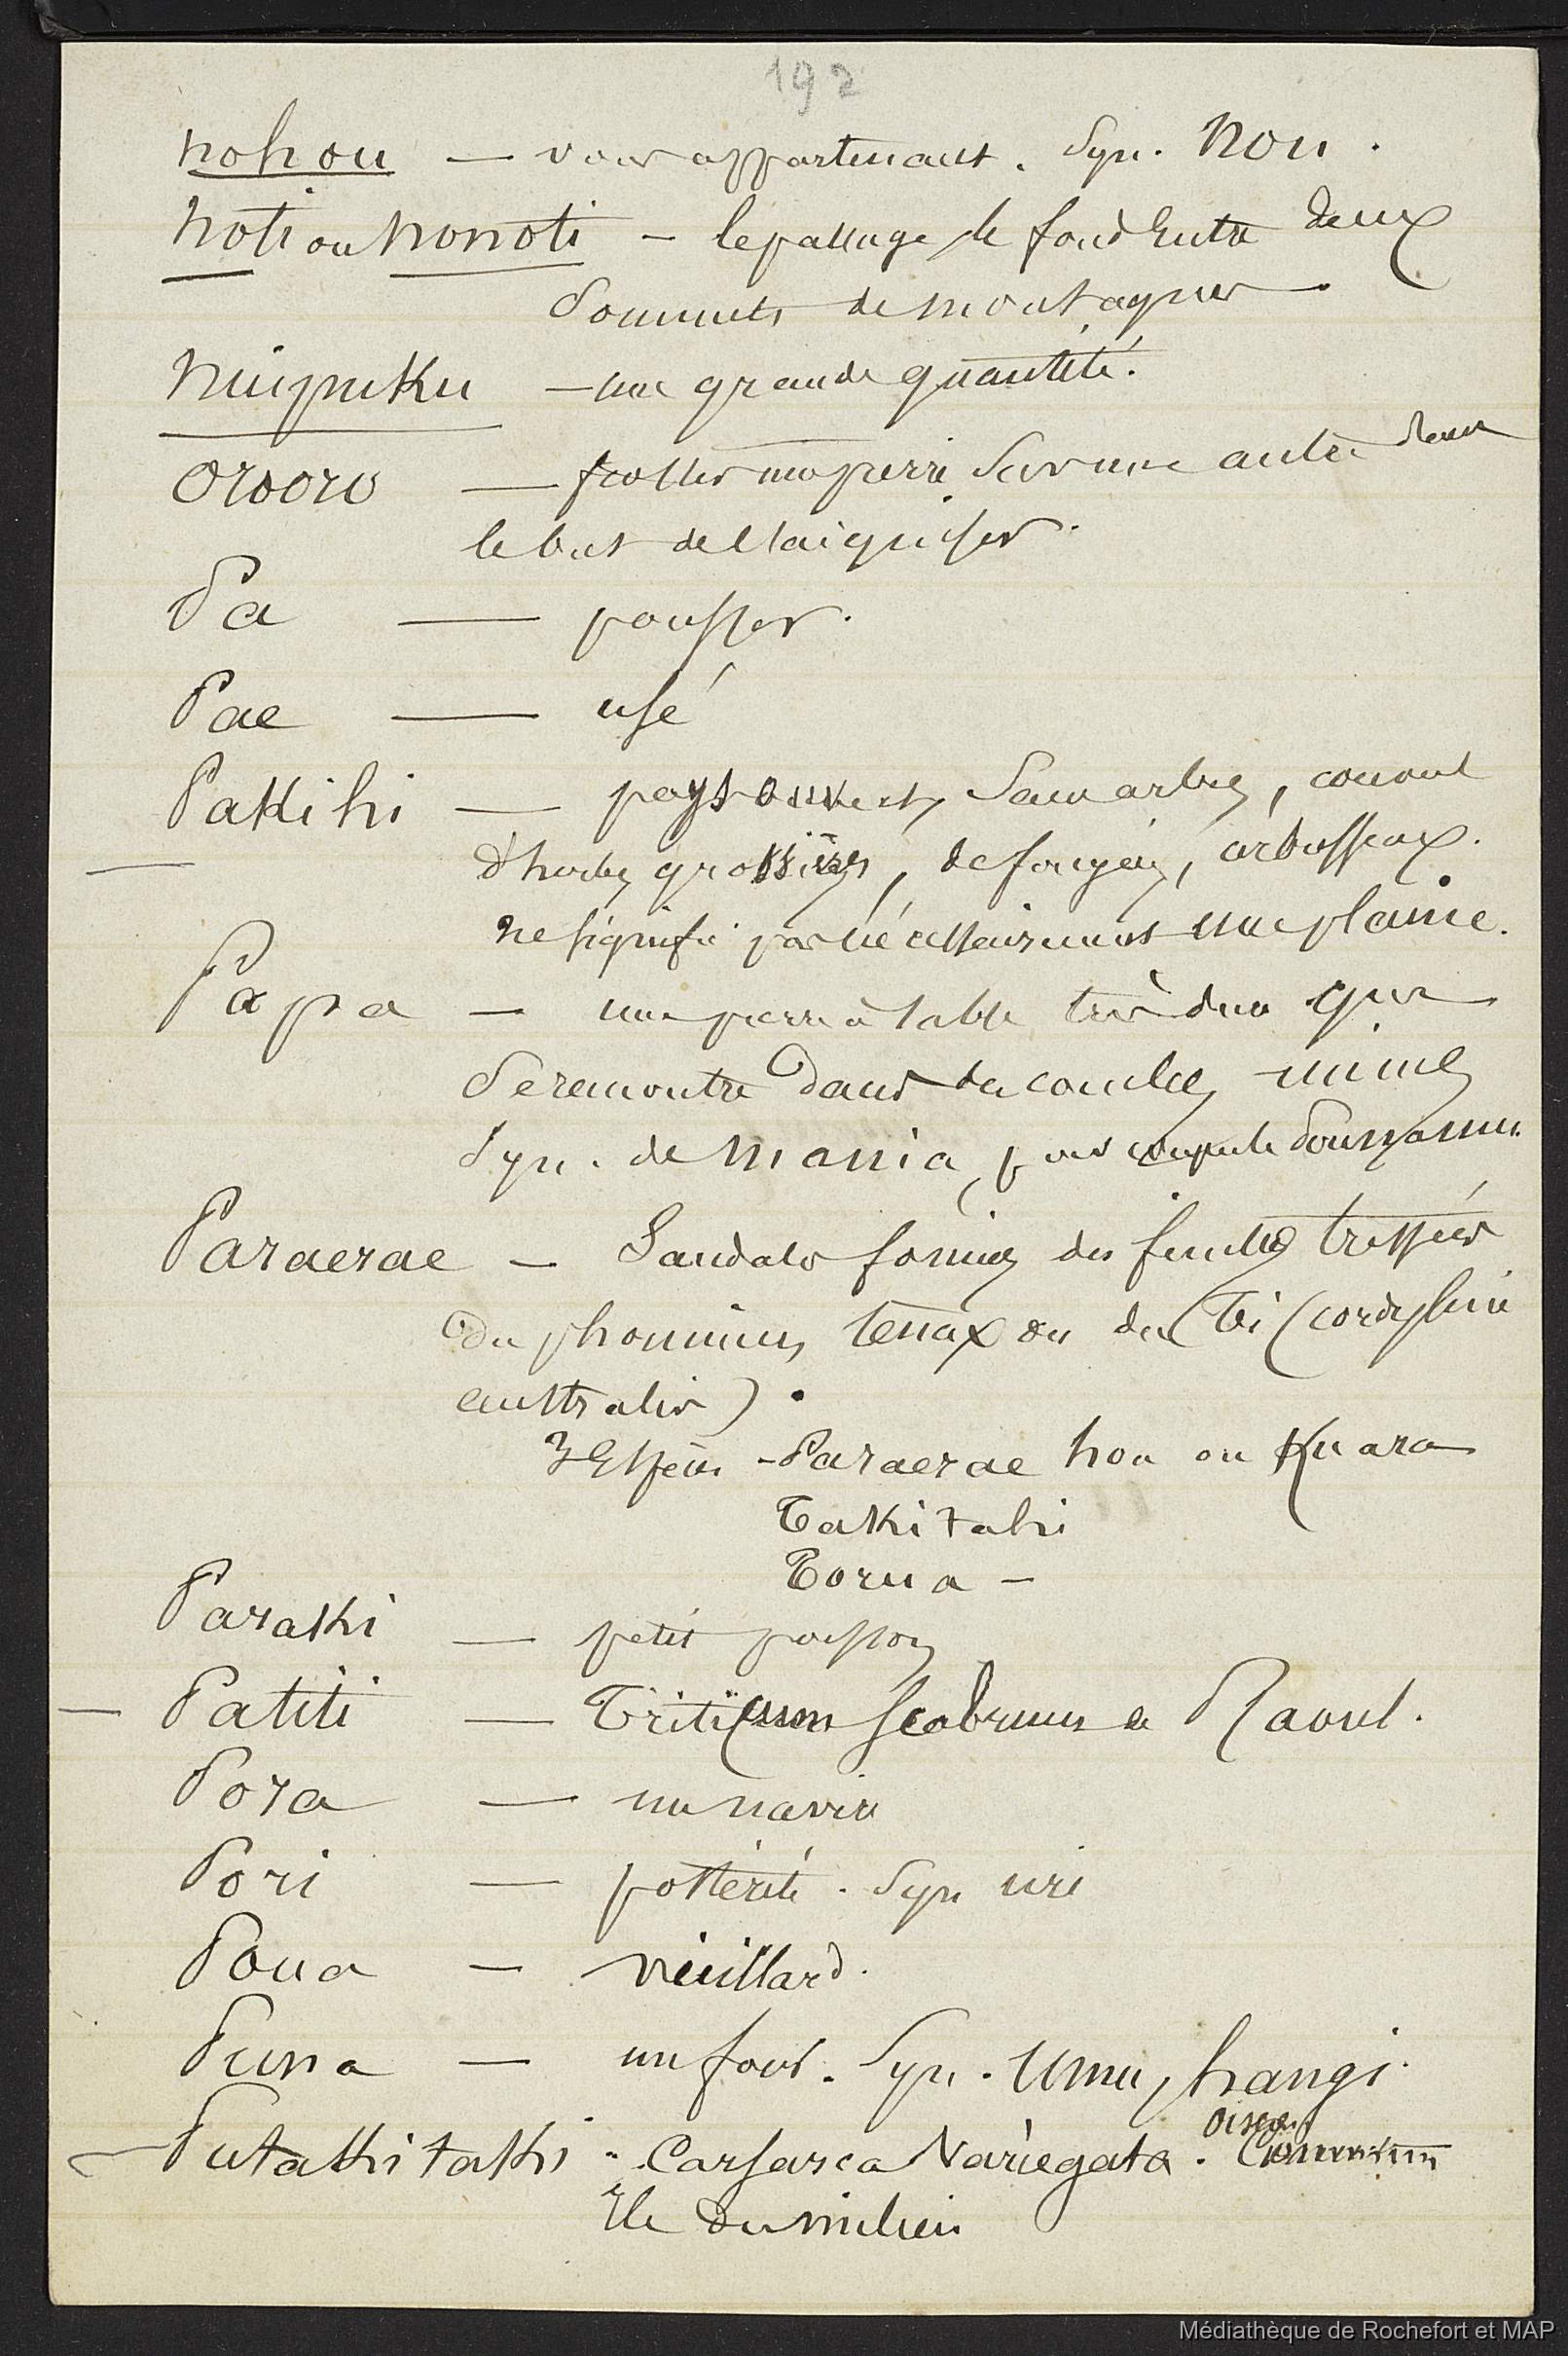 192
nohou — vous appartenant. Syn. nou.
noti ou nonoti — le passage le fond entre deux
sommets de montagnes
nuipuku — une grande quantité.
Orooro — frotter une pierre sur une autre dans
le but de l'aiguiser.
Pa — pousser.
Pae — usé
Pakihi — pays ouvert, sans arbres, couvert
d'herbes grossières, de fougères, arbrisseaux.
ne signifie pas nécessairement une plaine.
Papa — une pierre à sable très dure qui
se rencontre dans des couches
Syn. de mania,
Paraerae — Sandales formées des feuilles tressées
du phormium tenax ou du Ti (cordyline
australis).
3 Espèces - Paraerae hou ou Kuara
Takitahi
Torua —
Paraki — petit poisson
— Patiti — Triticum scabrum de Raoul.
Pora — un navire
Pori — postérité. Syn uri
Poua — vieillard.
Puna — un four. Syn. Umu, hangi.
Oiseau
— Putakitaki - Carsarca Variegata. Commun
Ile du milieu
Médiathèque de Rochefort et MAP